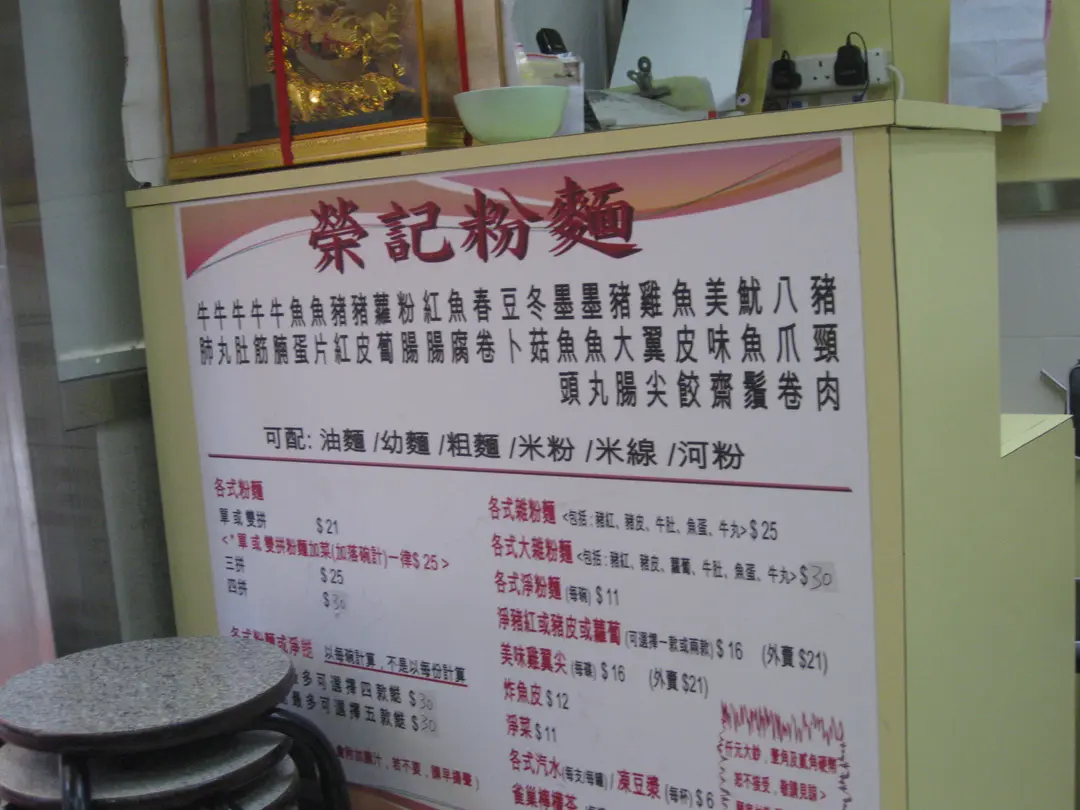 榮記粉麵
豬頸肉
八爪卷
魷魚鬚
美味齋
魚皮餃
雞翼尖
豬大腸
墨魚丸
墨魚頭
冬菇
豆卜
春卷
魚腐
紅腸
粉腸
蘿蔔
豬皮
豬紅
魚片
魚蛋
牛腩
牛筋
牛肚
牛丸
牛肺
可配: 油麵 /幼麵 /粗麵 /米粉 /米線 /河粉
各式粉麵
單或雙拼 $21
<*單或雙拼粉麵加菜(加落碗計)一律$25>
三拼 $25
四拼 $30
以每碗計算，不是以每份計算
最多可選擇四款餸 $30
最多可選擇五款餸 $30
各式雜粉麵 <包括：豬紅、豬皮、牛肚、魚蛋、牛丸> $25
各式大雜粉麵 <包括：豬紅、豬皮、蘿蔔、牛肚、魚蛋、牛丸> $30
各式淨粉麵 (每碗) $11
淨豬紅或豬皮或蘿蔔 (可選擇一款或兩款) $16 (外賣 $21)
美味雞翼尖 (每碟) $16 (外賣 $21)
炸魚皮 $12
淨菜 $11
各式汽水 (每支/每罐) / 凍豆漿 (每杯) $6
仟元大鈔，壹角及貳角硬幣
恕不接受，敬請見諒>